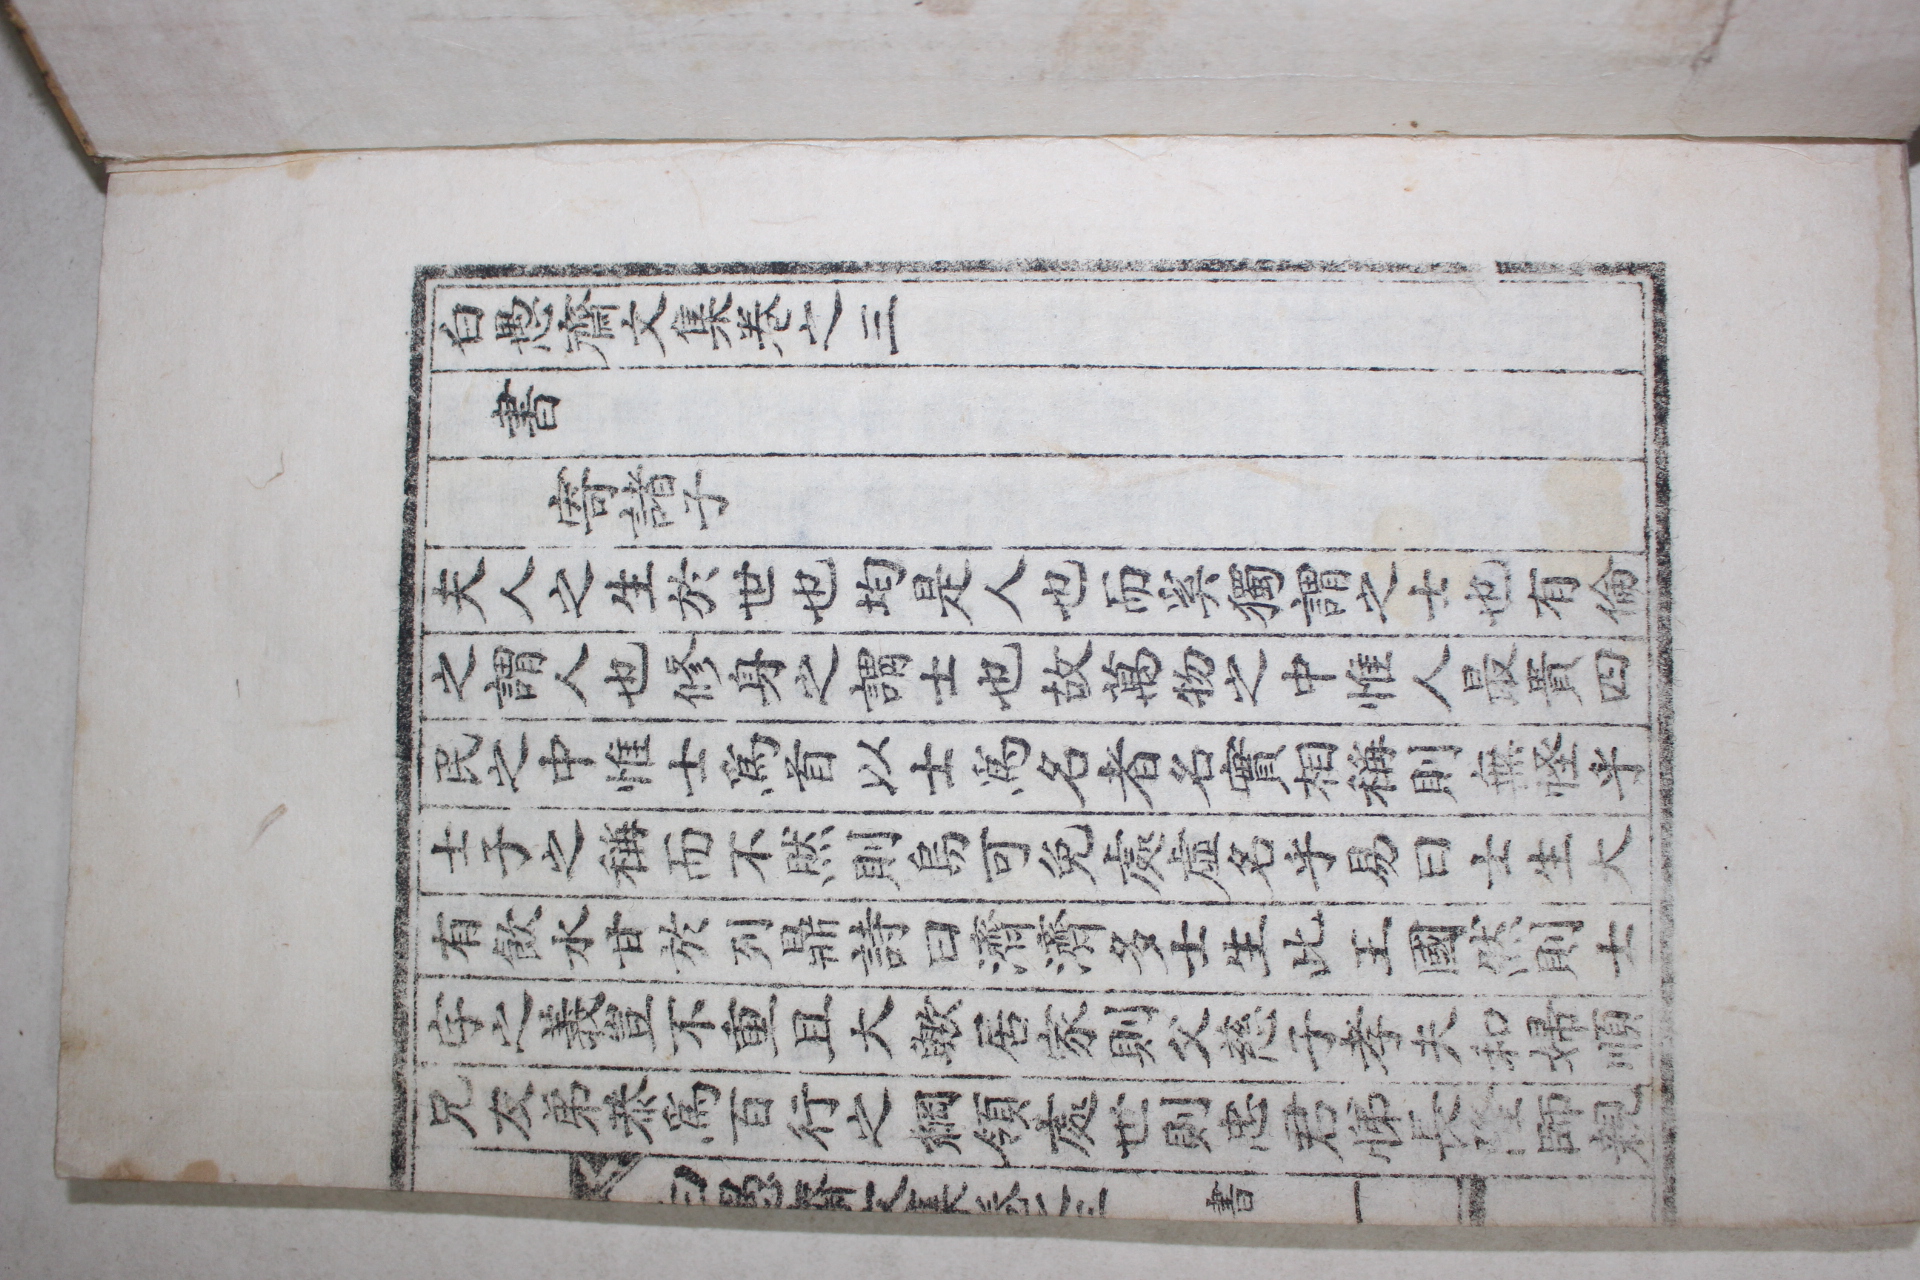 白愚齋文集卷之三
書
寄諸子
夫人之生於世也均是人也而奚獨謂之士也有倫
之謂人也修身之謂士也故萬物之中惟人最貴四
民之中惟士爲首以士爲名者名實相稱則無怪乎
士子之稱而不然則烏可免處虛名乎易曰士生大
有飮水甘於列鼎詩曰濟濟多士生此王國然則士
字之義豈不重且大歟居家則父慈子孝夫和婦順
兄友弟恭爲百行之綱領處世則忠君悌長隆師親
白愚齋文集卷之三 書 一